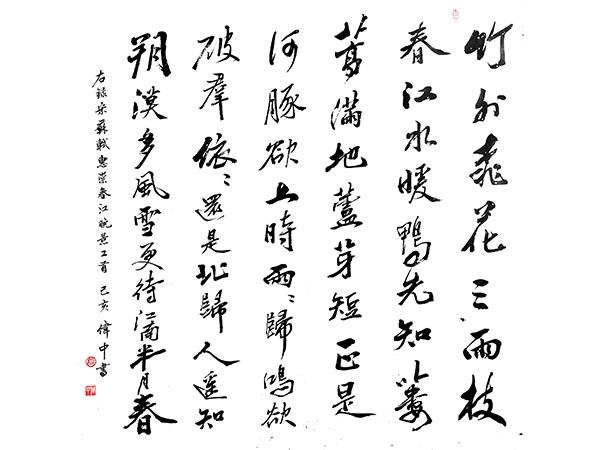 竹外桃花三兩枝
春江水暖鴨先知蔞
蒿滿地蘆芽短正是
河豚欲上時兩〻歸鴻欲
破羣依〻還是北歸人遥知
朔漠多風雪更待江南半月春
右録宋蘇軾惠崇春江晚景二首 己亥 偉中書